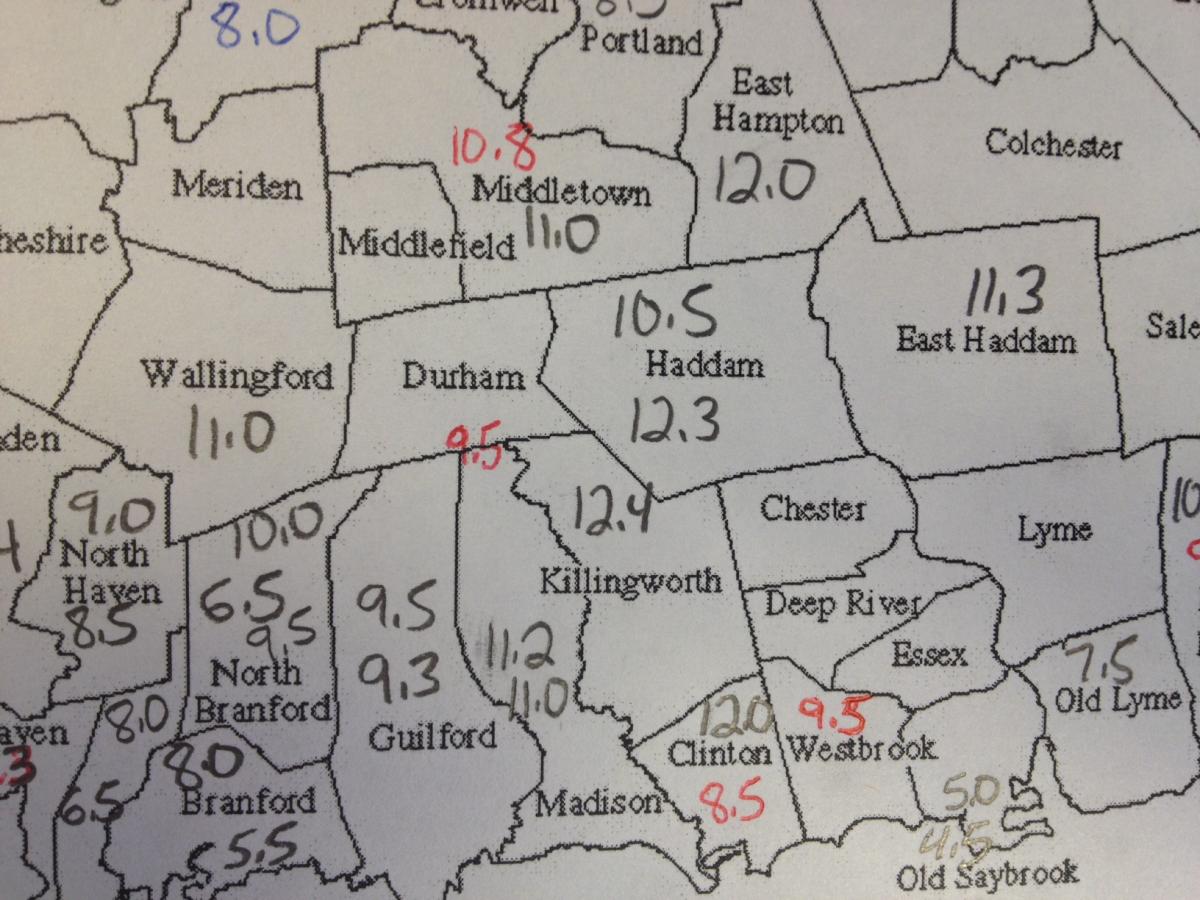 8.0
Portland
East
Hampton
12.0
Colchester
10.8
Meriden
Middletown
11.0
Middlefield
heshire
10.5
Haddam
12.3
11.3
East Haddam
Sale
Wallingford
11.0
Durham
9.5
den
9.0
North
Haven
8.5
10.0
6.5
9.5
North
Branford
9.5
9.3
Guilford
12.4
Killingworth
11.2
11.0
Chester
Lyme
10
Deep River
Essex
7.5
Old Lyme
aven
.3
8.0
6.5
8.0
Branford
5.5
Madison
12.0
Clinton
8.5
9.5
Westbrook
5.0
4.5
Old Saybrook